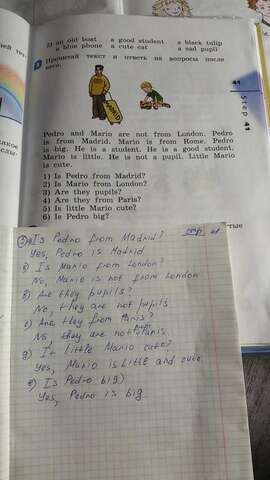 2) an old boat a good student a black tulip
a blue phone a cute cat a sad pupil
Прочитай текст и ответь на вопросы после
него.
41
Step
Pedro and Mario are not from London. Pedro
is from Madrid. Mario is from Rome. Pedro
is big. He is a student. He is a good student.
Mario is little. He is not a pupil. Little Mario
is cute.
1) Is Pedro from Madrid?
2) Is Mario from London?
3) Are they pupils?
4) Are they from Paris?
5) Is little Mario cute?
6) Is Pedro big?
Is Pedro from Madrid? стр 41
Yes, Pedro is Madrid
Is Mario from London?
No, Mario is not from London
Are they pupils?
No, they are not pupils
Are they from Paris?
No they are not Paris
Little Mario cute?
Yes, Mario is little and cute
Is Pedro big)
Yes, Pedro is big